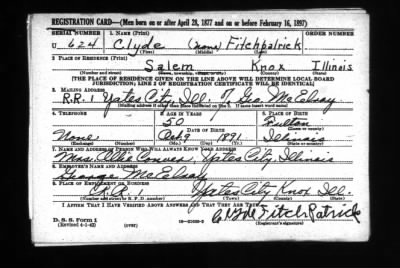 REGISTRATION CARD—(Men born on or after April 28, 1877 and on or before February 16, 1897)
SERIAL NUMBER 1. NAME (Print)
U 624 Clyde (none) Fitchpatrick
(First) (Middle) (Last)
2. PLACE OF RESIDENCE (Print)
Salem Knox Illinois
(Number and street) (Town, township, village, or city) (County) (State)
[THE PLACE OF RESIDENCE GIVEN ON THE LINE ABOVE WILL DETERMINE LOCAL BOARD
JURISDICTION; LINE 2 OF REGISTRATION CERTIFICATE WILL BE IDENTICAL]
3. MAILING ADDRESS
R.R. 1 Yates City Ill. % Geo McElvay
[Mailing address if other than place indicated on line 2. If same insert word same]
4. TELEPHONE 5. AGE IN YEARS 6. PLACE OF BIRTH
50 Fulton
DATE OF BIRTH (Town or county)
None Oct 9 1891 Illinois
(Exchange) (Number) (Mo.) (Day) (Yr.) (State or country)
7. NAME AND ADDRESS OF PERSON WHO WILL ALWAYS KNOW YOUR ADDRESS
Mrs. Yates City, Illinois
8. EMPLOYER'S NAME AND ADDRESS
George McElvay
9. PLACE OF EMPLOYMENT OR BUSINESS
R.R. 1 Yates City Knox Ill.
(Number and street or R. F. D. number) (Town) (County) (State)
I AFFIRM THAT I HAVE VERIFIED ABOVE ANSWERS AND THAT THEY ARE TRUE.
D. S. S. Form 1
(Revised 4-1-42) (over) Fitch Patrick
(Registrant's signature)